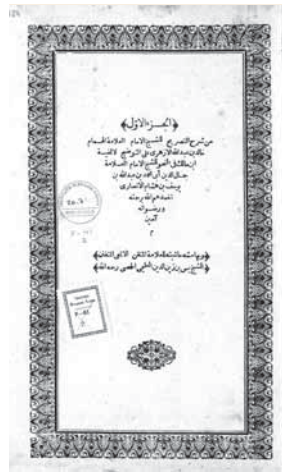 ﴿الجزء الاول﴾
من شرح التصريح للشيخ الامام العلامة الهمام
خالد بن عبدالله الازهرى على التوضيح لالفية
ابن مالك فى النحو للشيخ الامام العلامة
جمال الدين أبى محمد بن عبدالله بن
يوسف بن هشام الانصارى
تغمدهم الله برحمته
ورضوانه
آمين
م
﴿وبهامشه حاشية العلامة المتقن الالمعى المتفنن﴾
﴿الشيخ يس بن زين الدين العليمى الحمصى رحمه الله﴾